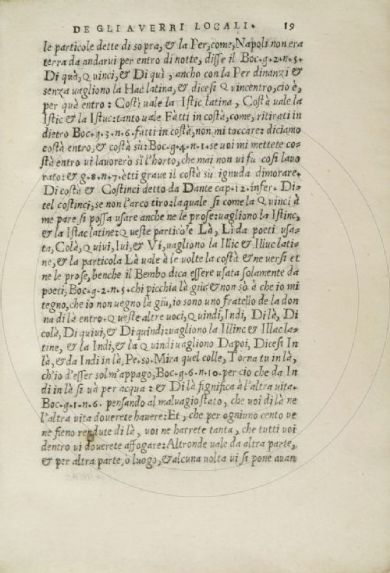 DE GLI AVERRI LOCALI. 19
le particole dette di sopra, & la Per, come, Napoli non era
terra da andarui per entro di notte, disse il Boc. g. 2. n. 5.
Di quà, Quinci, & Di quà, ancho con la Per dinanzi &
senza uagliono la Hac latina, & dicesi Quincentro, cio è,
per quà entro: Costì uale la Istic latina, Costà uale la
Istic & la Istuc: tanto uale Fatti in costà, come, ritirati in
dietro Boc. g. 3. n. 6. fatti in costà, non mi toccare: diciamo
costà entro, & costà sù: Boc. g. 4. n. 1. se uoi mi mettete co-
stà entro ui lauorerò sì l'horto, che mai non ui fù così lauo
rato: & g. 8. n. 7. etti graue il costà sù ignuda dimorare.
Di costà & Costinci detto da Dante cap. 12. infer. Di-
tel costinci, se non l'arco tiro. la quale si come la Quinci à
me pare si possa usare anche ne le prose: uagliono la Istinc,
& la Istac latine: Queste particole Là, Lida poeti usa-
ta, Colà, Quiui, Iui, & Vi, uagliono la Illic & Illuc lati-
ne, & la particola Là uale à le uolte la costà & ne uersi et
ne le prose, benche il Bembo dica essere usata solamente da
poeti, Boc. g. 2. n. 5. chi picchia là giù & non so à che io mi
tegno, che io non uegno là giù, io sono uno fratello de la don
na di là entro. Queste altre uoci, Quindi, Indi, Di là, Di
colà, Di quiui, & Di quindi: uagliono la Illinc & Illac la-
tine, & la Indi, & la Quindi uagliono Dapoi, Dicesi In
là, & da Indi in là, Pe. so. Mira quel colle, Torna tu in là,
ch'io d'esser sol m'appago, Boc. g. 6. n. 10. per cio che da In
di in là si uà per acqua: & Di là significa à l'altra uita.
Boc. g. 1. n. 6. pensando al maluagio stato, che uoi di là ne
l'altra uita douerete hauere: Et, che per ogniuno cento ve
ne fieno rendute di là, voi ne harrete tanta, che tutti voi
dentro vi douerete affogare: Altronde uale da altra parte,
& per altra parte, o luogo, & alcuna uolta ui si pone auan